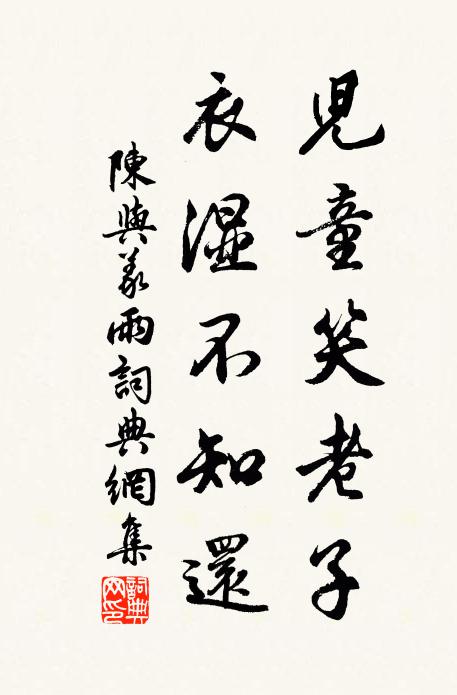 兒童笑老子
衣濕不知還
陳與義雨詞典網集
詞典網印